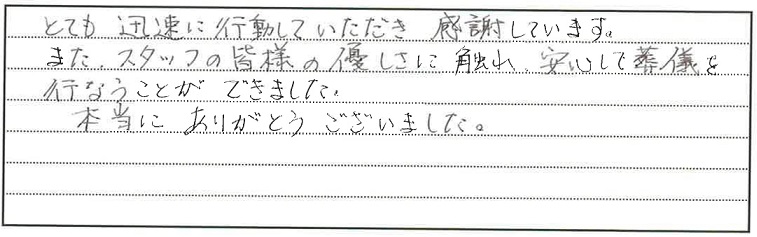 とても 迅速に行動していただき 感謝しています。
また、スタッフの皆様の優しさに触れ、安心して葬儀を
行なうことが できました。
本当に ありがとう ございました。